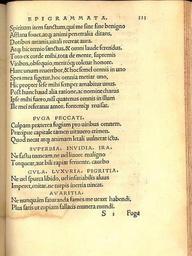 EPIGRAMMATA. 131
Spiritum item sanctum, qui me sine sine benigno
Afflatu fouet, atq; animi penetralia ditans,
Dotibus æterni
Atq; hic ternio sanctus, & omni laude ferendus,
Toto ex corde mihi, tota de mente, supremis
Viribus, obsequio, meritoq; colatur honore.
Hunc unum reuerebor, & hoc semel omnis in uno
Spes mea figatur, hoc omnia metiar uno,
Hic propter se mihi semper amabitur unus.
Post hunc haud alia ratione, ac nomine charus
Ipse mihi fuero, nisi quatenus omnis in illum
Se mei referat amor, fontemq; reusat.
FVGA PECCATI.
Culpam præterea fugiam pro uiribus omnem,
Præcipue capitale tamen uitauero crimen,
Quod necat atq; animam letali uulnerat ictu.
SVPERBIA. INVIDIA. IRA.
Ne fastu tumeam, ne uel liuore maligno
Torquear, aut bili rapiar feruente, cauebo
GVLA. LVXVRIA. PIGRITIA.
Ne uel spurca libido, uel insatiabilis aluus
Imperet, enitar, ne turpis inertia uincat.
AVARITIA.
Ne nunquam saturanda fames me uexet habendi,
Plus satis ut cupiam fallacis munera mundi.
S 1 Fuga